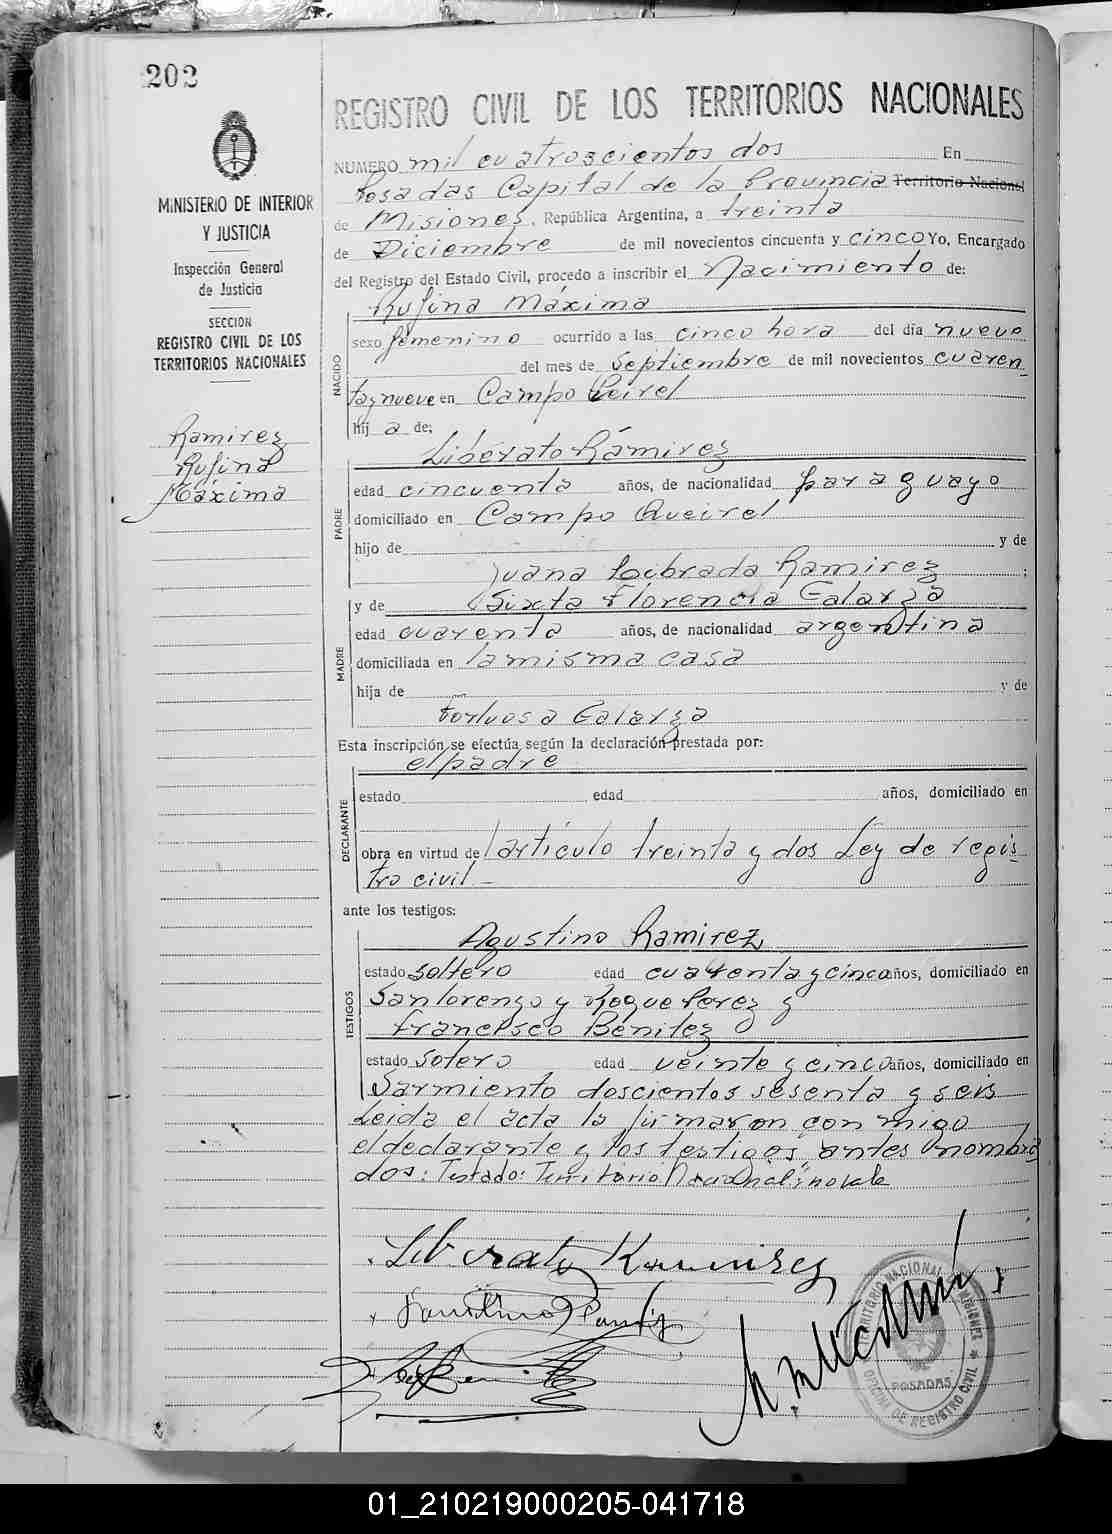 202
MINISTERIO DE INTERIOR
Y JUSTICIA
Inspección General
de Justicia
SECCION
REGISTRO CIVIL DE LOS
TERRITORIOS NACIONALES
Ramirez
Rufina
Máxima
REGISTRO CIVIL DE LOS TERRITORIOS NACIONALES
NUMERO mil cuatroscientos dos En
Posadas Capital de la Provincia Territorio Nacional
de Misiones, República Argentina, a treinta
de Diciembre de mil novecientos cincuenta y cinco Yo, Encargado
del Registro del Estado Civil, procedo a inscribir el Nacimiento de:
Rufina Máxima
NACIDO
sexo femenino ocurrido a las cinco hora del día nueve
del mes de Septiembre de mil novecientos cuaren
ta y nueve en Campo
hij a de:
Liberato Rámirez
PADRE
edad cincuenta años, de nacionalidad paraguayo
domiciliado en Campo Queirel
hijo de y de
Juana Librada Ramirez ;
y de Sixta Florencia Galarza
MADRE
edad cuarenta años, de nacionalidad argentina
domiciliada en la misma casa
hija de y de
Galarza
Esta inscripción se efectúa según la declaración prestada por:
el padre
DECLARANTE
estado edad años, domiciliado en
obra en virtud de artículo treinta y dos Ley de regis
tro civil -
ante los testigos:
Agustino Ramirez
TESTIGOS
estado soltero edad cuarenta y cinco años, domiciliado en
San lorenzo y Roque Perez y
Francisco Benitez
estado sotero edad veinte y cinco años, domiciliado en
Sarmiento doscientos sesenta y seis
Leida el acta la firmaron con migo
el declarante y los testigos antes nombra
dos: Testado: "Territorio Nacional": no vale
Liberato Ramirez
TERRITORIO NACIONAL MISIONES
POSADAS
OFICINA DE REGISTRO CIVIL
01_210219000205-041718